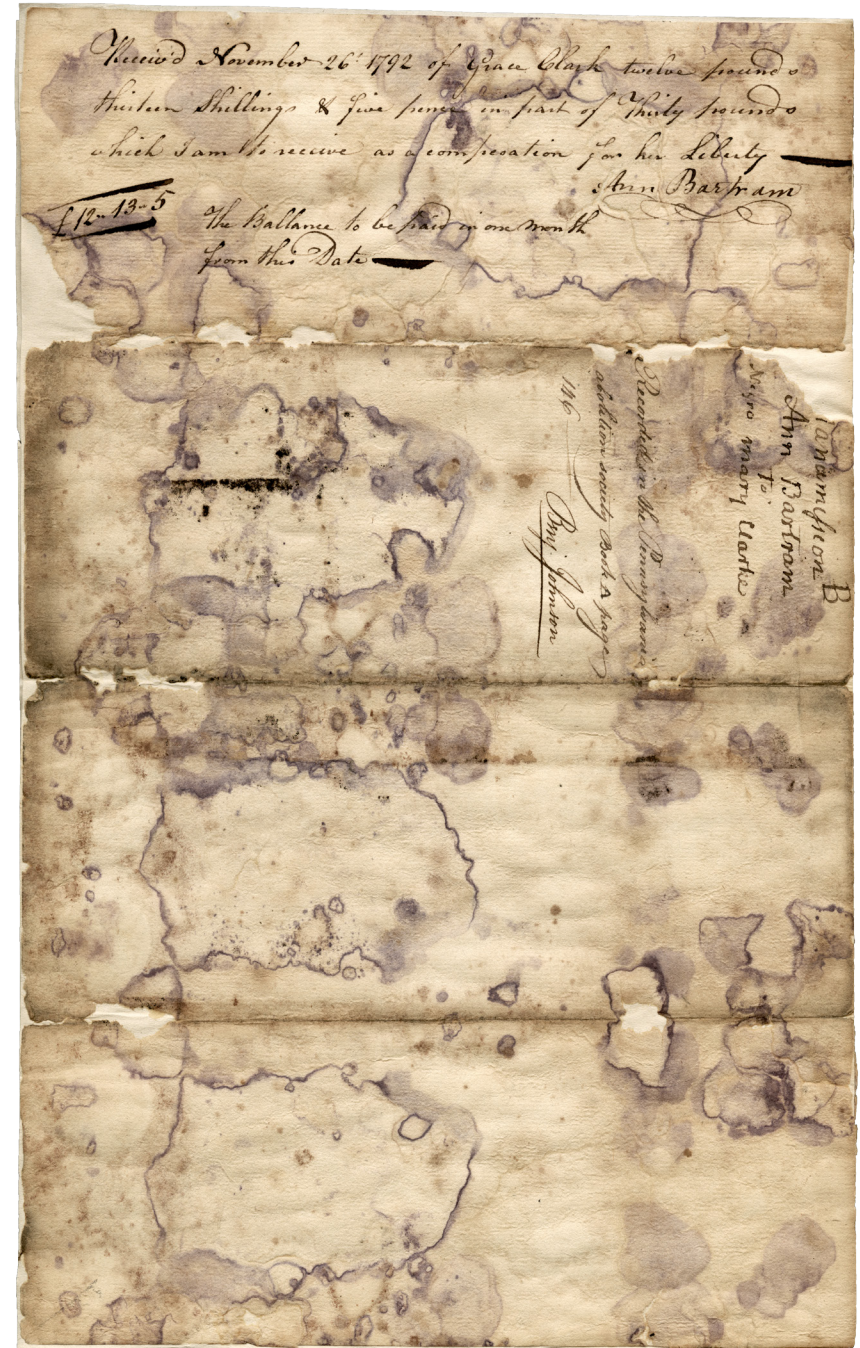 Receiv'd November 26t 1792 of Grace Clark twelve pounds
thirteen Shillings & five pence in part of Thirty pounds
which I am to receive as a compesation for her Liberty
Ann Bartram
£12-13-5
The Ballance to be paid in one month
from this Date
B
Ann Bartram
To
Negro Mary Clarke
Recorded in the Pennsylvania
abolition society Book A page
146
Benj Johnson